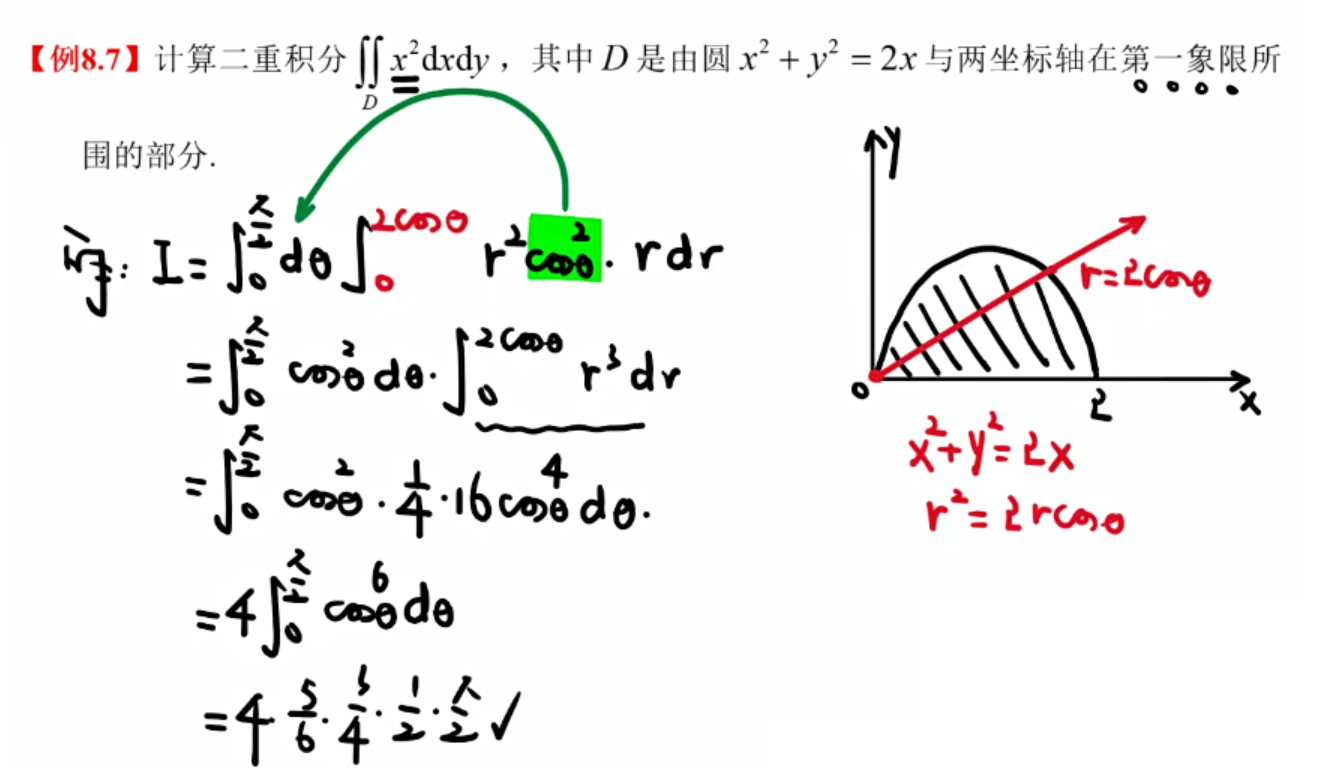 【例8.7】计算二重积分 ∬_D x²dxdy，其中 D 是由圆 x² + y² = 2x 与两坐标轴在第一象限所
围的部分.
解: I = ∫_0^{π/2} dθ ∫_0^{2cosθ} r²cos²θ · r dr
= ∫_0^{π/2} cos²θ dθ · ∫_0^{2cosθ} r³ dr
= ∫_0^{π/2} cos²θ · 1/4 · 16cos⁴θ dθ.
= 4∫_0^{π/2} cos⁶θ dθ
= 4 · 5/6 · 3/4 · 1/2 · π/2 ✓
y
r = 2cosθ
0 2 x
x² + y² = 2x
r² = 2rcosθ